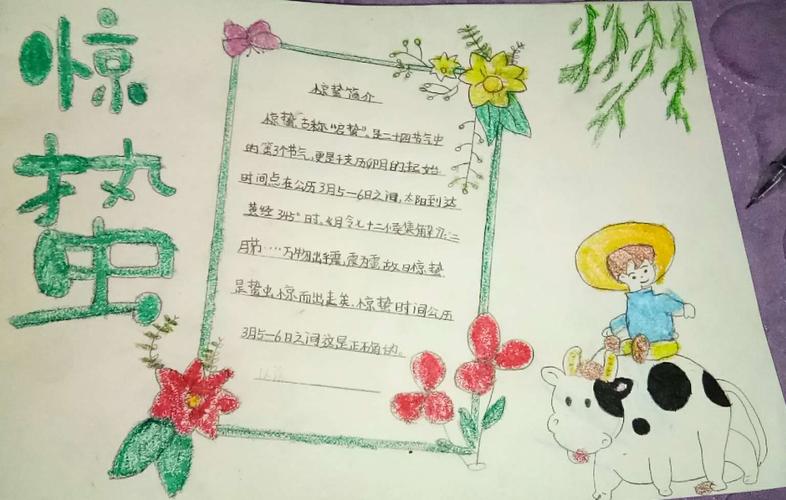 惊蛰
惊蛰简介
惊蛰,古称"启蛰",是二十四节气中
的第3个节气,更是干支历卯月的起始
时间点在公历3月5—6日之间,太阳到达
黄经345°时。《月令七十二候集解》:二
月节……万物出乎震,震为雷,故曰惊蛰
是蛰虫惊而出走矣。惊蛰时间公历
3月5—6日之间这是正确的。